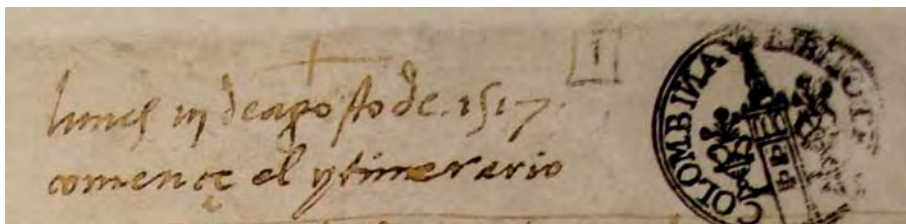 1
lunes iij de agosto de . 1517 .
començe el ytinerario
COLOMBINA